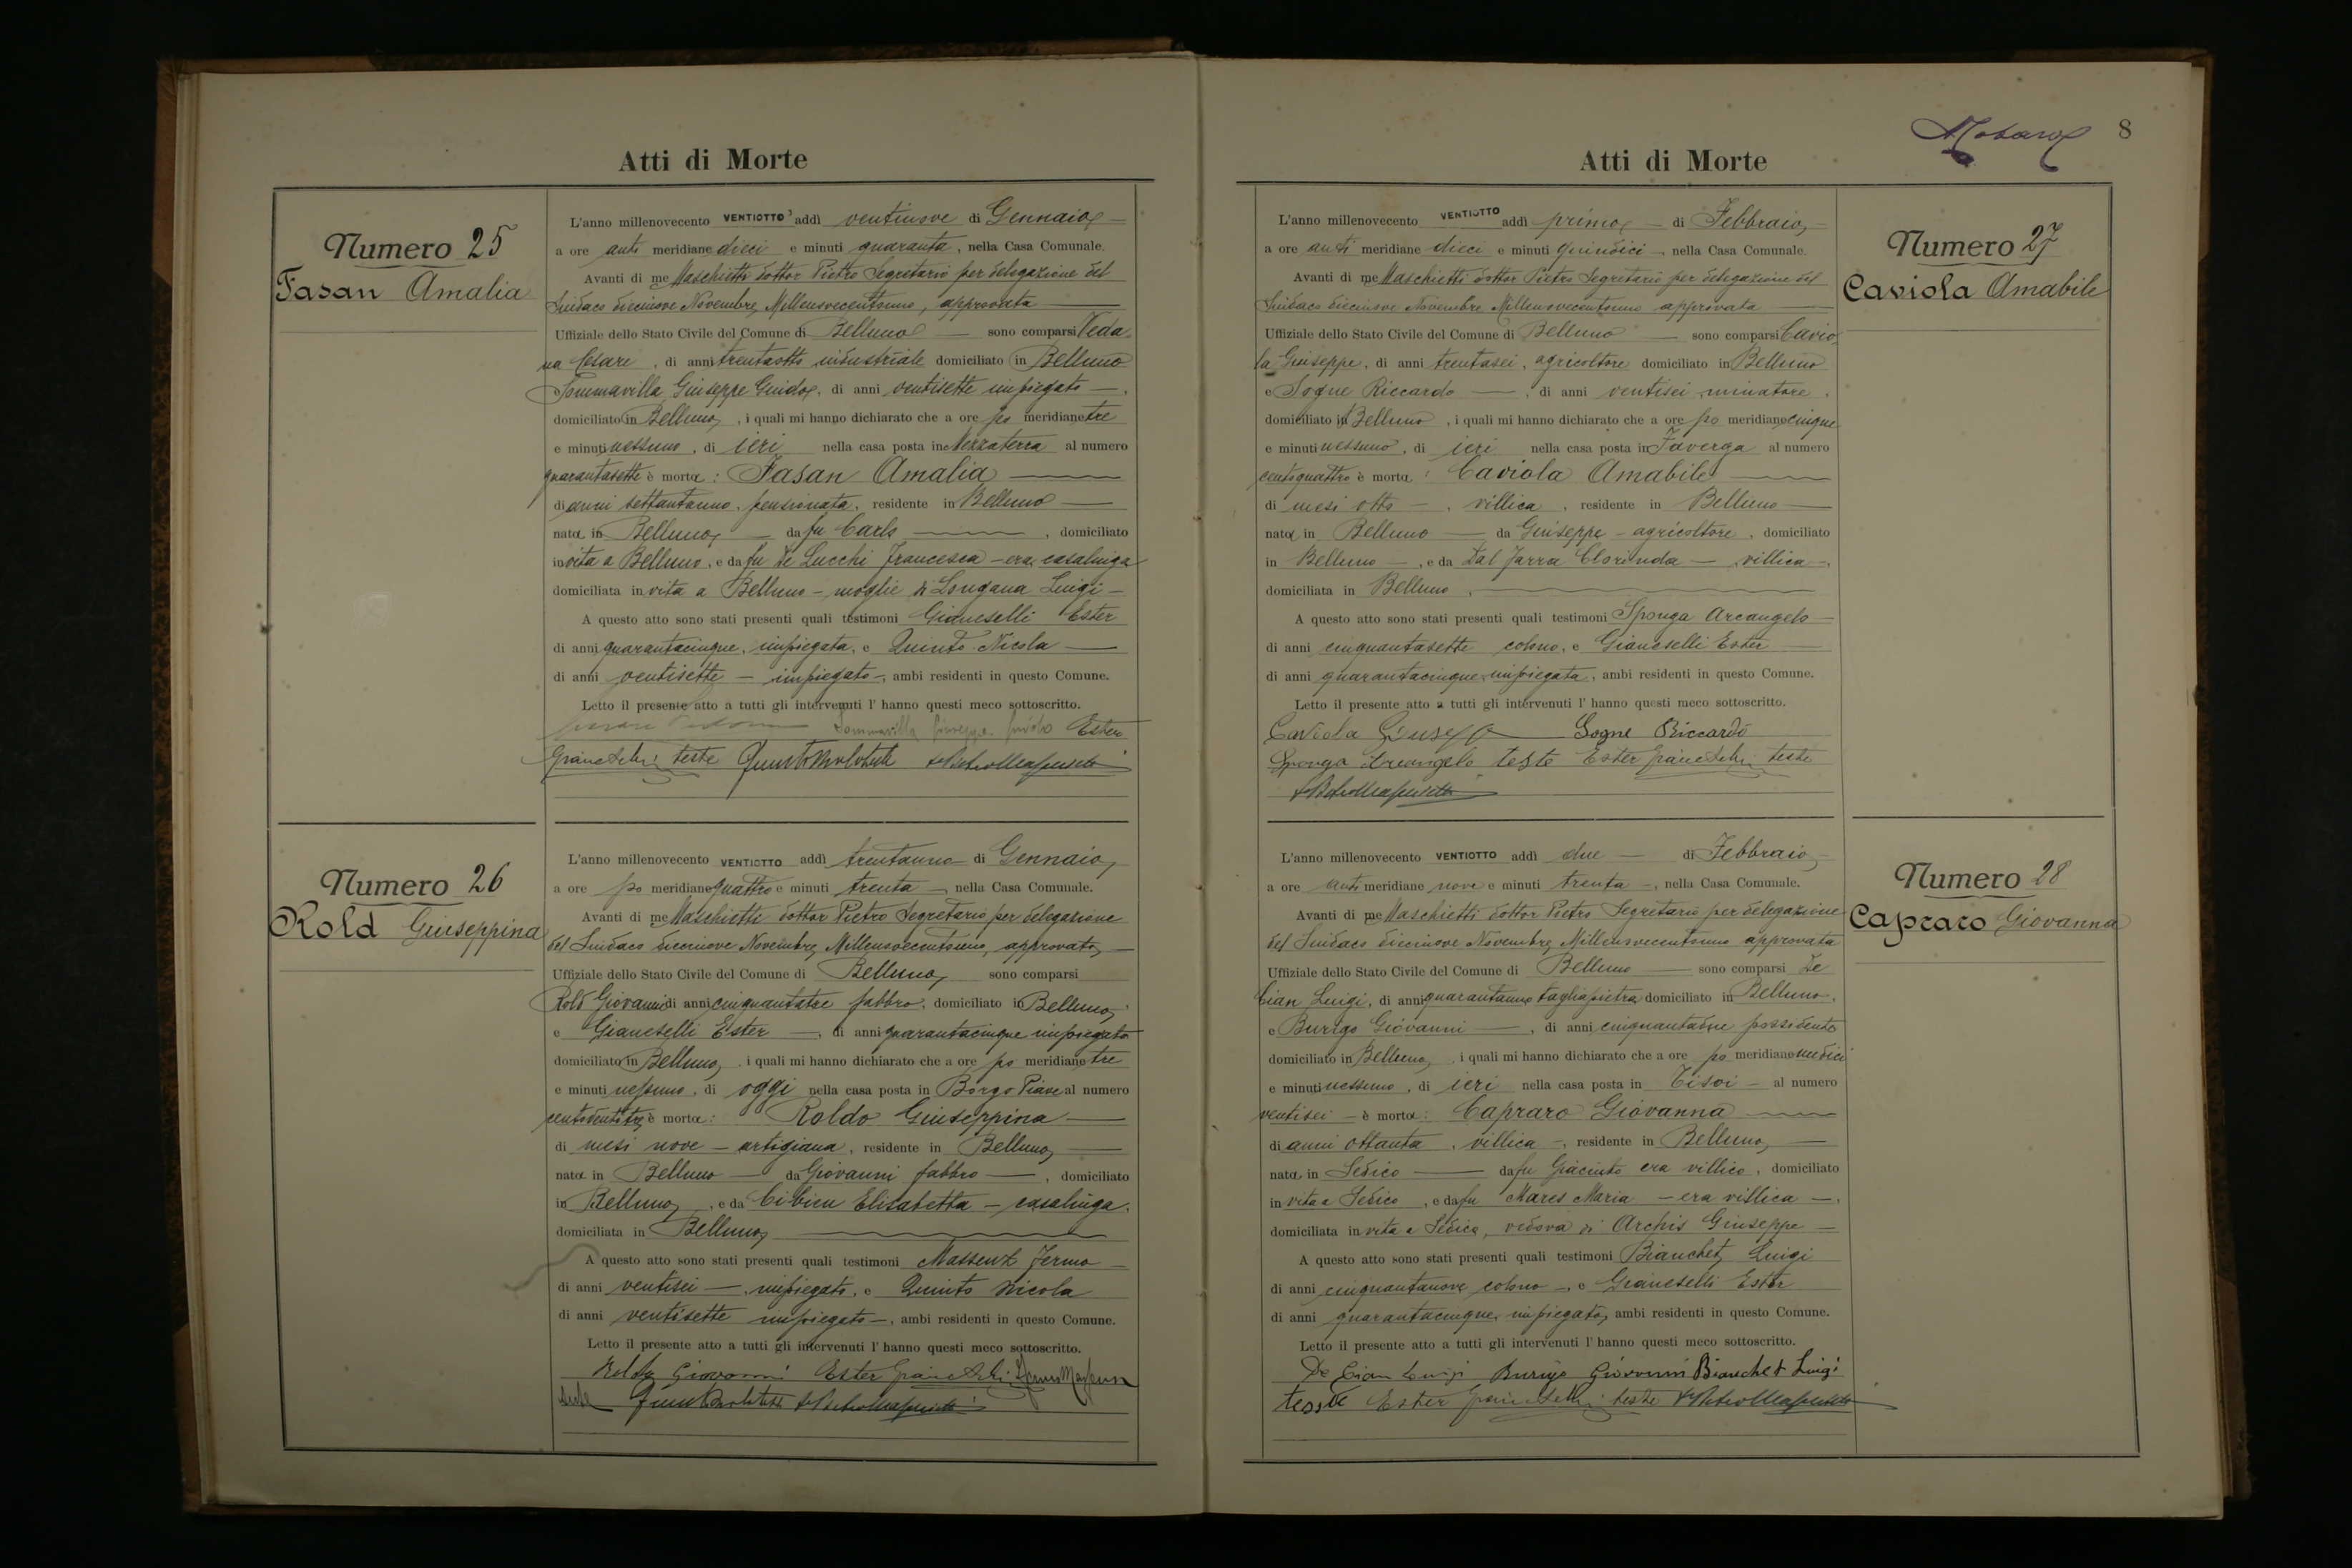 Atti di Morte
Numero 25
Fasan Amalia
L'anno millenovecento VENTIOTTO addì ventinove di Gennaio
a ore anti meridiane dieci e minuti quaranta, nella Casa Comunale.
Avanti di me Maschietti dottor Pietro Segretario per delegazione del
Sindaco diecinove Novembre Millenovecentouno, approvata
Uffiziale dello Stato Civile del Comune di Belluno sono comparsi Veda-
na Cesare, di anni trentaotto industriale domiciliato in Belluno
e Sommavilla Giuseppe Guido, di anni ventisette impiegato
domiciliato in Belluno, i quali mi hanno dichiarato che a ore po meridiane tre
e minuti nessuno, di ieri nella casa posta in Mezzaterra al numero
quarantasette è morta: Fasan Amalia
di anni settantauno, pensionata, residente in Belluno
nata in Belluno da fu Carlo, domiciliato
in vita a Belluno, e da fu De Lucchi Francesca - era casalinga
domiciliata in vita a Belluno - moglie di Longana Luigi -
A questo atto sono stati presenti quali testimoni Gianeselli Ester
di anni quarantacinque, impiegata, e Quinto Nicola
di anni ventisette - impiegato -, ambi residenti in questo Comune.
Letto il presente atto a tutti gli intervenuti l' hanno questi meco sottoscritto.
Sommavilla Giuseppe Guido Ester
Gianeselli teste
Numero 26
Rold Giuseppina
L'anno millenovecento VENTIOTTO addì trentauno di Gennaio
a ore po meridiane quattro e minuti trenta -, nella Casa Comunale.
Avanti di me Maschietti dottor Pietro Segretario per delegazione
del Sindaco diecinove Novembre Millenovecentouno, approvata
Uffiziale dello Stato Civile del Comune di Belluno sono comparsi
Rold Giovanni di anni cinquantatre fabbro, domiciliato in Belluno
e Gianeselli Ester -, di anni quarantacinque impiegata
domiciliato in Belluno, i quali mi hanno dichiarato che a ore po meridiane tre
e minuti nessuno, di oggi nella casa posta in Borgo Piave al numero
è morta: Roldo Giuseppina
di mesi nove - artigiana, residente in Belluno
nata in Belluno da Giovanni fabbro -, domiciliato
in Belluno, e da Cibien Elisabetta - casalinga,
domiciliata in Belluno
A questo atto sono stati presenti quali testimoni Massenz Fermo
di anni ventisei -, impiegato, e Quinto Nicola
di anni ventisette impiegato -, ambi residenti in questo Comune.
Letto il presente atto a tutti gli intervenuti l' hanno questi meco sottoscritto.
Giovanni Ester Gianeselli
8
Atti di Morte
Numero 27
Caviola Amabile
L'anno millenovecento VENTIOTTO addì primo - di Febbraio
a ore anti meridiane dieci e minuti quindici -, nella Casa Comunale.
Avanti di me Maschietti dottor Pietro Segretario per delegazione del
Sindaco diecinove Novembre Millenovecentouno approvata
Uffiziale dello Stato Civile del Comune di Belluno sono comparsi Cavio-
la Giuseppe, di anni trentasei, agricoltore domiciliato in Belluno
e Sogne Riccardo -, di anni ventisei minatore,
domiciliato in Belluno, i quali mi hanno dichiarato che a ore po meridiane cinque
e minuti nessuno, di ieri nella casa posta in Faverga al numero
centoquattro è morta: Caviola Amabile
di mesi otto -, villica, residente in Belluno
nata in Belluno da Giuseppe - agricoltore, domiciliato
in Belluno -, e da Dal Farra Clorinda - villica -,
domiciliata in Belluno,
A questo atto sono stati presenti quali testimoni Sponga Arcangelo
di anni cinquantasette colono, e Gianeselli Ester
di anni quarantacinque impiegata, ambi residenti in questo Comune.
Letto il presente atto a tutti gli intervenuti l' hanno questi meco sottoscritto.
Caviola Giuseppe Sogne Riccardo
Sponga Arcangelo teste Ester Gianeselli teste
Numero 28
Capraro Giovanna
L'anno millenovecento VENTIOTTO addì due - di Febbraio
a ore anti meridiane nove e minuti trenta -, nella Casa Comunale.
Avanti di me Maschietti dottor Pietro Segretario per delegazione
del Sindaco diecinove Novembre Millenovecentouno approvata
Uffiziale dello Stato Civile del Comune di Belluno sono comparsi De
Cian Luigi, di anni quarantauno tagliapietra domiciliato in Belluno,
e Burigo Giovanni -, di anni cinquantadue possidente
domiciliato in Belluno, i quali mi hanno dichiarato che a ore po meridiane
e minuti nessuno, di ieri nella casa posta in Tisoi - al numero
ventisei - è morta: Capraro Giovanna
di anni ottanta, villica -, residente in Belluno
nata in Sedico da fu Giacinto era villico, domiciliato
in vita a Sedico, e da fu Mares Maria - era villica -,
domiciliata in vita a Sedico, vedova di Archis Giuseppe -
A questo atto sono stati presenti quali testimoni Bianchet Luigi
di anni cinquantanove colono -, e Gianeselli Ester
di anni quarantacinque impiegata, ambi residenti in questo Comune.
Letto il presente atto a tutti gli intervenuti l' hanno questi meco sottoscritto.
De Cian Luigi Burigo Giovanni Bianchet Luigi
Ester Gianeselli teste